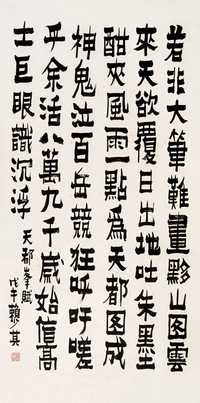 若非大筆難畫黟山图雲
來天欲覆日出地吐朱墨
酣夾風雨一點為天都图成
神鬼泣百岳競狂呼吁嗟
乎余活八萬九千歲始信高
士巨眼識沉浮 天都峯賦
戊午 其